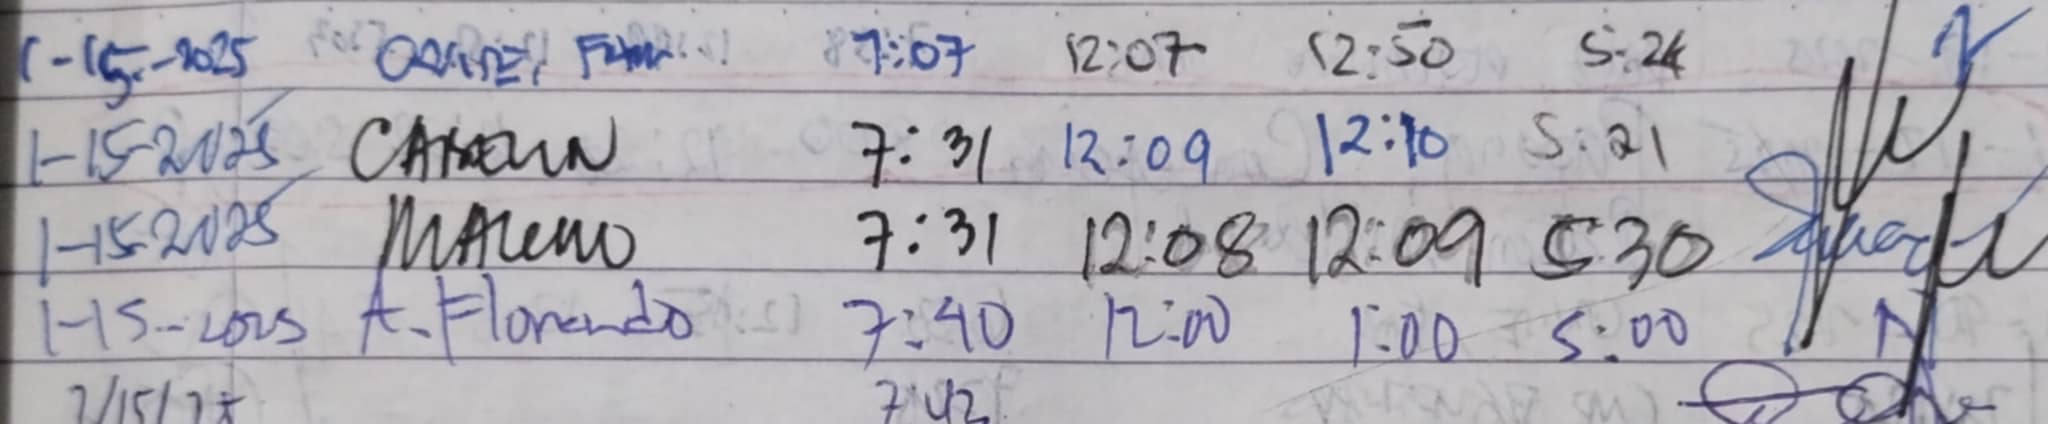 1-15-2025 7:07 12:07 12:50 5:24
1-15-2025 7:31 12:09 12:10 5:21
1-15-2025 7:31 12:08 12:09 5 30
1-15-2025 A. Florendo 7:40 12:00 1:00 5:00
7:42